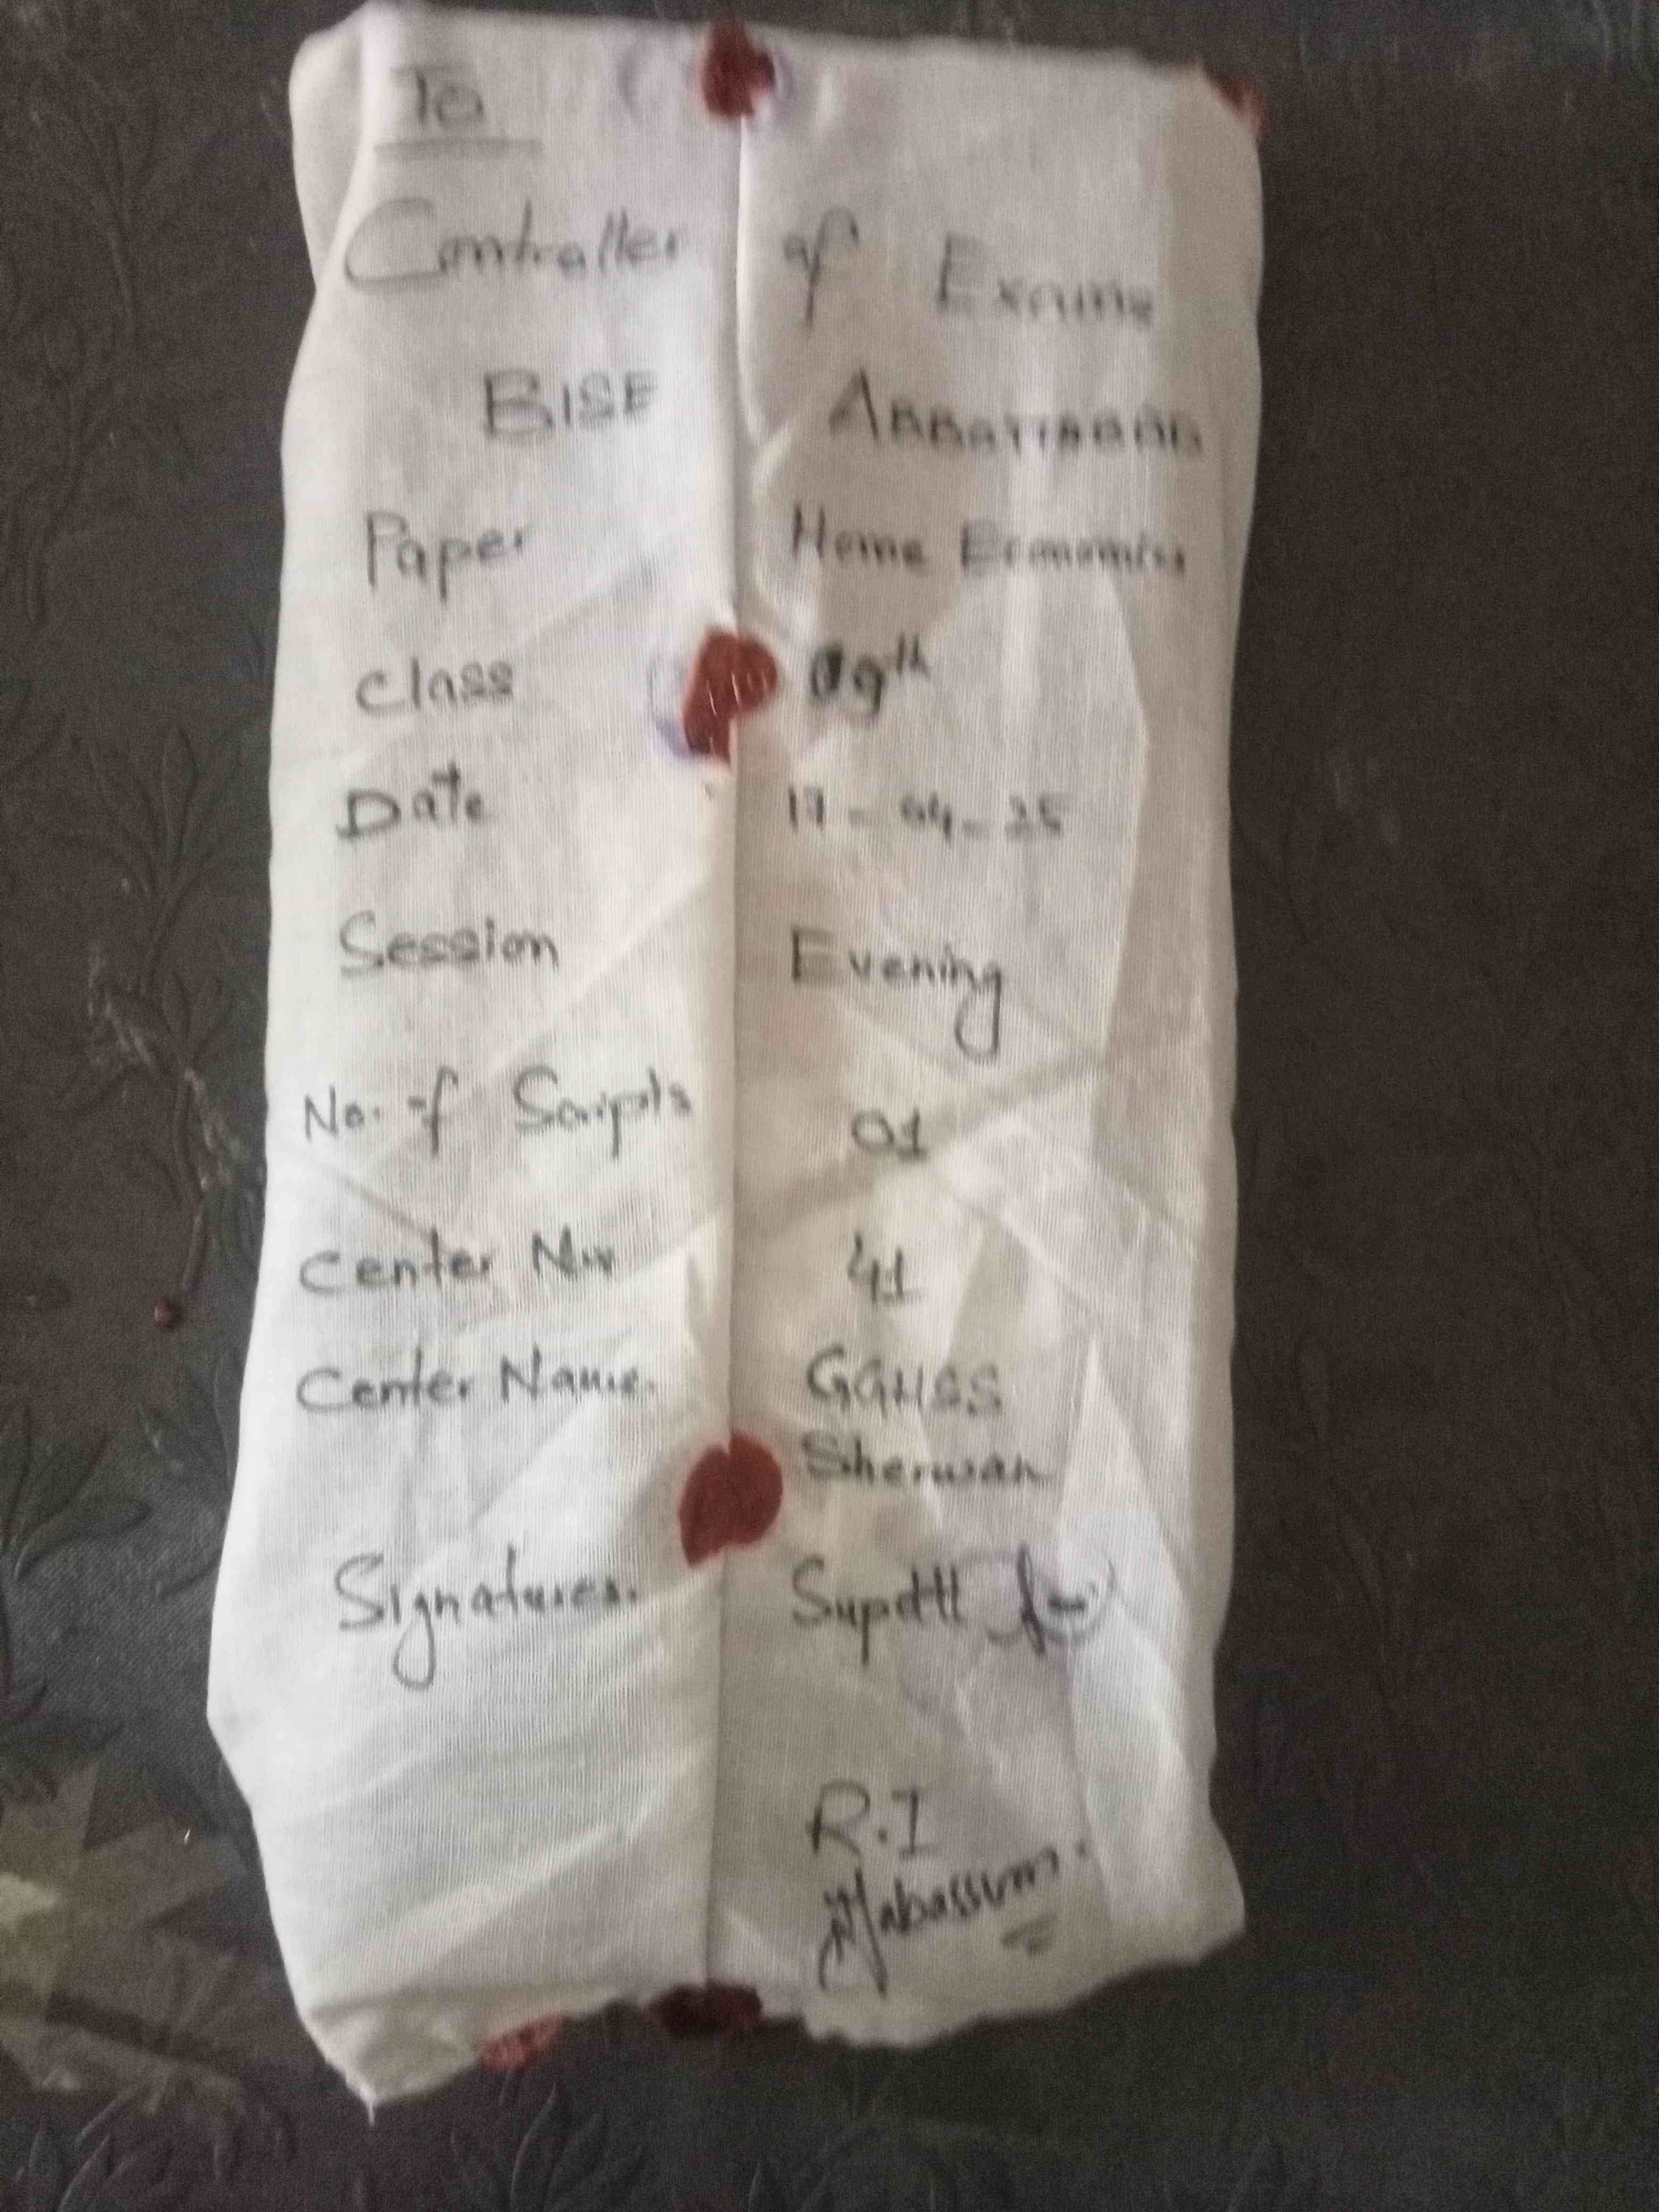 To
Controller of Exams
BISE ABBOTTABAD
Paper Home Economics
Class 09th
Date 17-04-25
Session Evening
No. of Scripts 01
Center No 41
Center Name. GGHSS
Sherwan
Signatures. Supdtt
R.I
Tabassum.